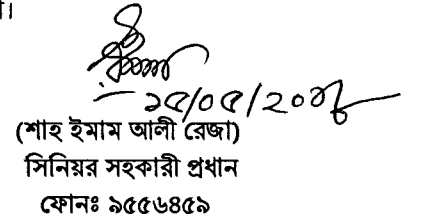 ।
১৫/০৫/২০১৮
(শাহ ইমাম আলী রেজা)
সিনিয়র সহকারী প্রধান
ফোনঃ ৯৫৫৬৪৫৯